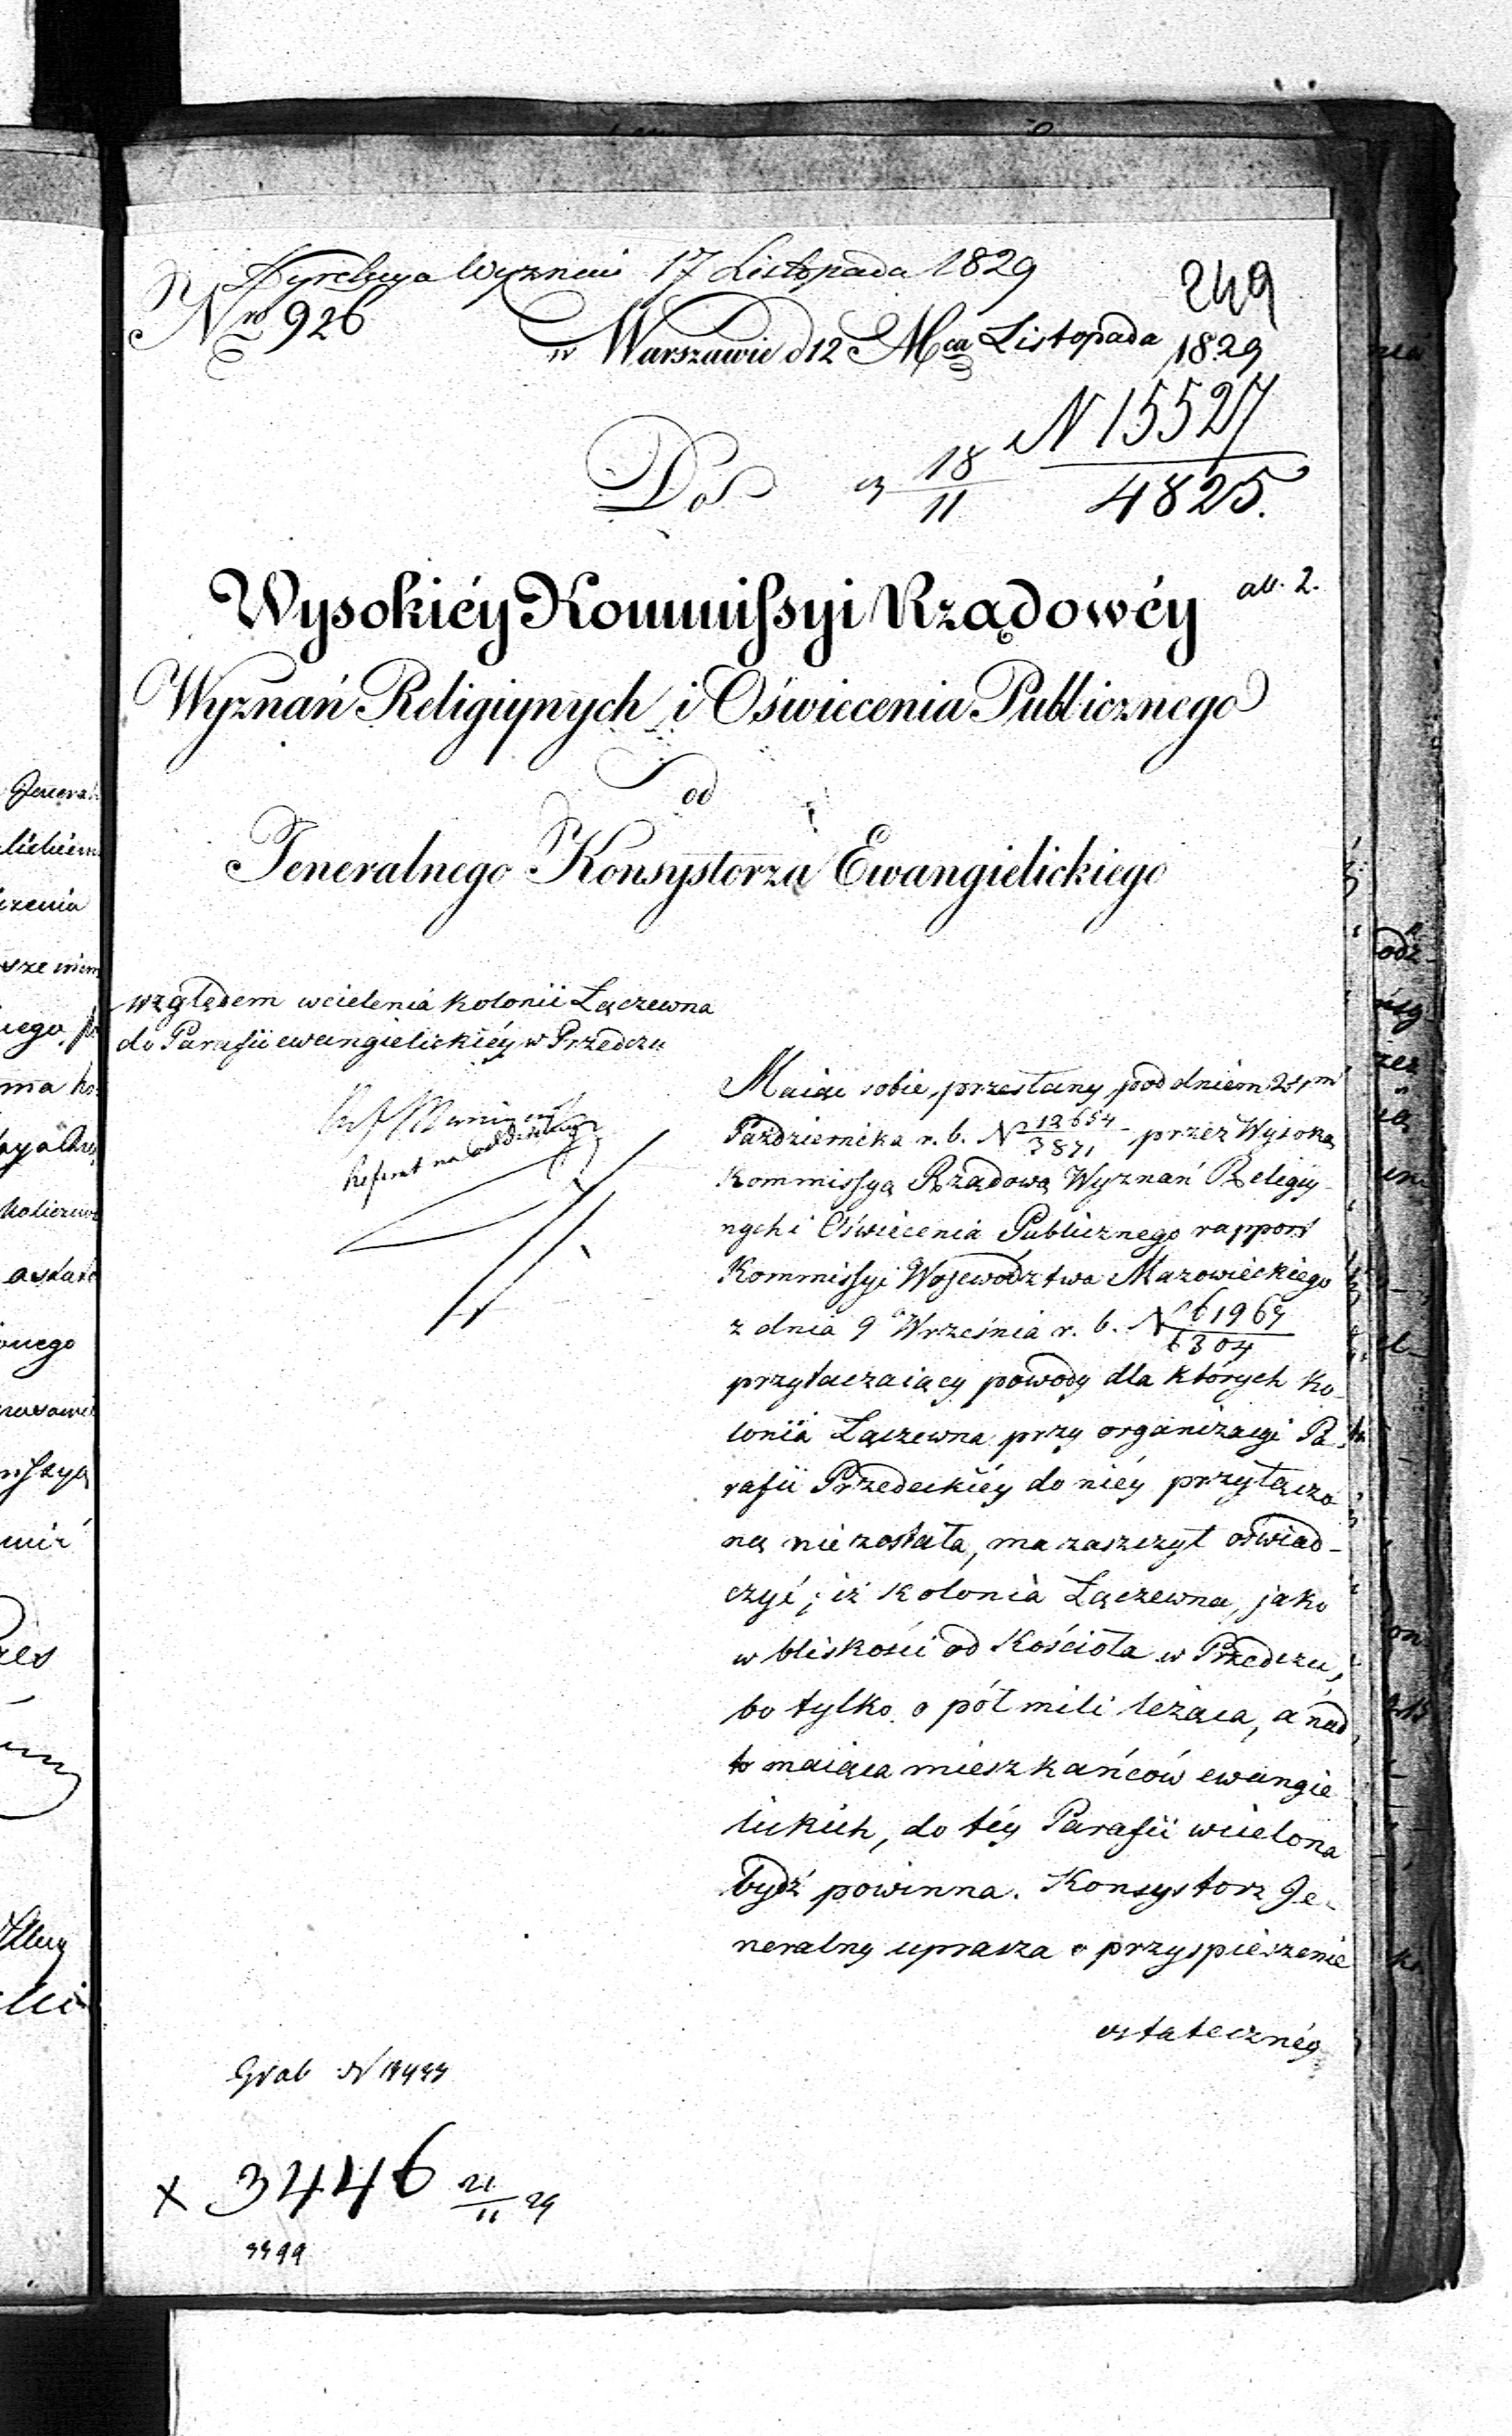 Dyrekcya Wyznań 17 Listopada 1829
249
Nro 926
w Warszawie d 12 Mca Listopada 1829
N 15527
4825.
Do
18
11
all. 2.
Wysokiéy Kommissyi Rządowéy
Wyznań Religiynych i Oświecenia Publicznego
od
Jeneralnego Konsystorza Ewangielickiego
względem wcielenia kolonii Łączewna
do Parafii ewangielickiéy w Przedczu
Referat na oddzielny
Maiąc sobie przesłany pod dniem 24m
Października r. b. N 12654/3871 przez Wysoką
Kommissyą Rządową Wyznań Religiy-
nych i Oświecenia Publicznego rapport
Kommissyi Województwa Mazowieckiego
z dnia 9 Września r. b. N 61969/6304
przytaczaiący powody dla których ko-
lonia Łączewna przy organizacyi Pa-
rafii Przedeckiéy do niéy przyłączo
ną nie została, ma zaszczyt oświad-
czyć, iż kolonia Łączewna, jako
w bliskości od Kościoła w Przedczu,
bo tylko o pół mili leżąca, a nad
to maiąca mieszkańców ewangie
lickich, do téy Parafii wcielona
bydź powinna. Konsystorz Je-
neralny uprasza o przyspieszenie
ostatecznéy
Grab N 19433
x 3446 21/11 29
3399